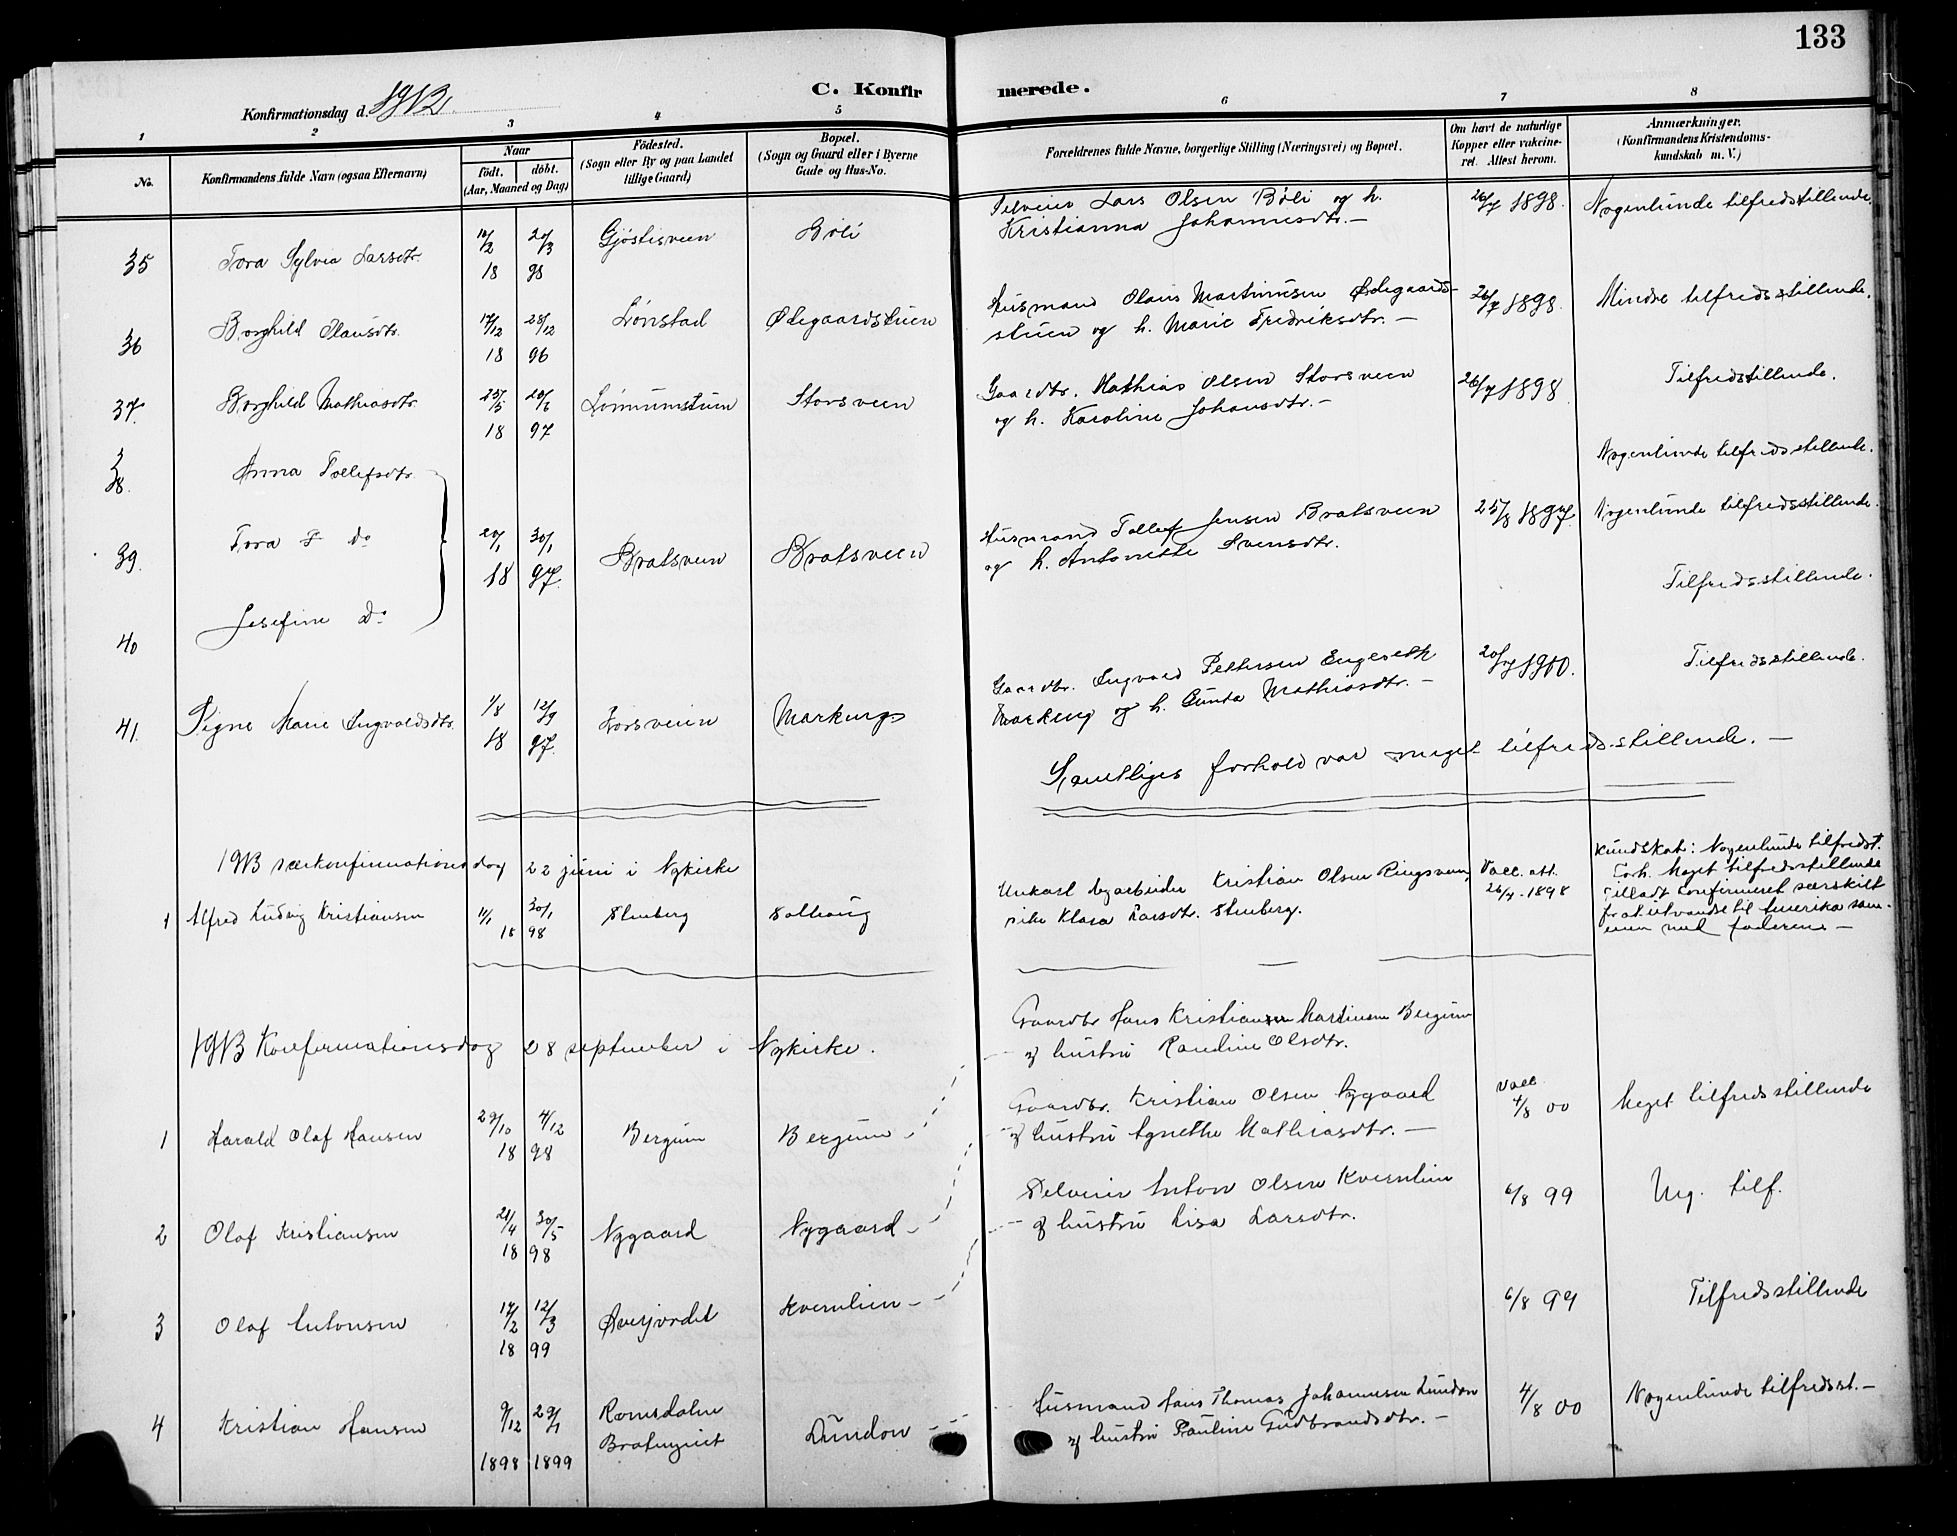 133
C. Konfirmerede.
Konfirmationsdag d. 1913.
1 2 3 4 5 6 7 8
No.
Konfirmandens fulde Navn (ogsaa Efternavn)
Naar
födt. döbt.
(Aar, Maaned og Dag)
Födested.
(Sogn eller By og paa Landet tillige Gaard)
Bopæl.
(Sogn og Gaard eller i Byerne Gade og Hus-No.
Forældrenes fulde Navne, borgerlige Stilling (Næringsvei) og Bopæl.
Om havt de naturlige Kopper eller vakcineret. Attest herom.
Anmærkninger.
(Konfirmandens Kristendomskundskab m. V.)
35 Tora Sylvia Larsdtr. 18 98 Gjöstisveen Böli
Selveier Lars Olsen Böli og h.
Kristianna Johannesdtr. –
26/7 1898. Nogenlunde tilfredsstillende.
36 Borghild Olausdtr. 17/12 28/12 18 96 Lönstad Ødegaardstuen
Husmand Olaus Martinusen Ødegaards-
stuen og h. Marie Fredriksdtr. –
26/7 1898. Mindre tilfredsstillende.
37. Borghild Mathiasdtr. 25/5 20/6 18 97 Storsveen
Gaardbr. Mathias Olsen Storsveen
og h. Karoline Johansdtr. –
26/7 1898 Tilfredstillende.
38. Anna Tollefsdtr. Nogenlunde tilfredsstillende.
39. Tora do 20/1 30/1 18 97. Bratsveen Bratsveen
Husmand Tollef Jensen Bratsveen
og h. Antonette Svensdtr.
25/8 1897. Nogenlunde tilfredsstillende.
40 Josefine Do Tilfredsstillende.
41. Signe Marie Ingvaldsdtr. 1/8 12/9 18 97. Korsveien Markeng
Gaardbr. Ingvald Pettersen Engeseth
Markeng og h. Gunda Mathiasdtr. –
1900. Tilfredsstillende.
Samtliges forhold var meget tilfredsstillende. –
1913 særkonfirmationsdag 22 juni i Nykirke
1 Alfred Ludvig Kristiansen 11/1 30/1 18 98 Stenberg Solhaug
Unkarl Kristian Olsen Ringsveen,
pike Klara Larsdtr. Stenberg.
Vacc. att. 26/7 - 1898
Kundskab: Nogenlunde tilfredst.
Forh. Meget tilfredsstillende
Tilladt konfirmeret særskilt
for at utvandre til Amerika sam-
men med faderen –
1913 Konfirmationsdag 28 september i Nykirke.
Gaardbr Hans Kristiansen Martinsen Bergum
og hustru Randine Olsdtr.
1 Harald Olaf Hansen 29/10 4/12 18 98 Bergum Bergum
Gaardbr. Kristian Olsen Nygaard
og hustru Agnethe Mathiasdtr. –
Vacc. 4/8 00 Meget tilfredsstillende
2 Olaf Kristiansen 21/4 30/5 18 98 Nygaard Nygaard
Selveier Anton Olsen Kvernlien
og hustru Lisa Larsdtr.
6/8 99 Mg. tilf.
3 Olaf Antonsen 17/2 12/3 18 99 Kvernlien
6/8 99 Tilfredsstillende
4 Kristian Hansen 9/12 29/1 1898 1899 Romsdalen
Lundon
Husmand Hans Thomas Johannesen Lundon
og hustru Pauline Gudbrandsdtr. –
4/8 00 Nogenlunde tilfredsst. –